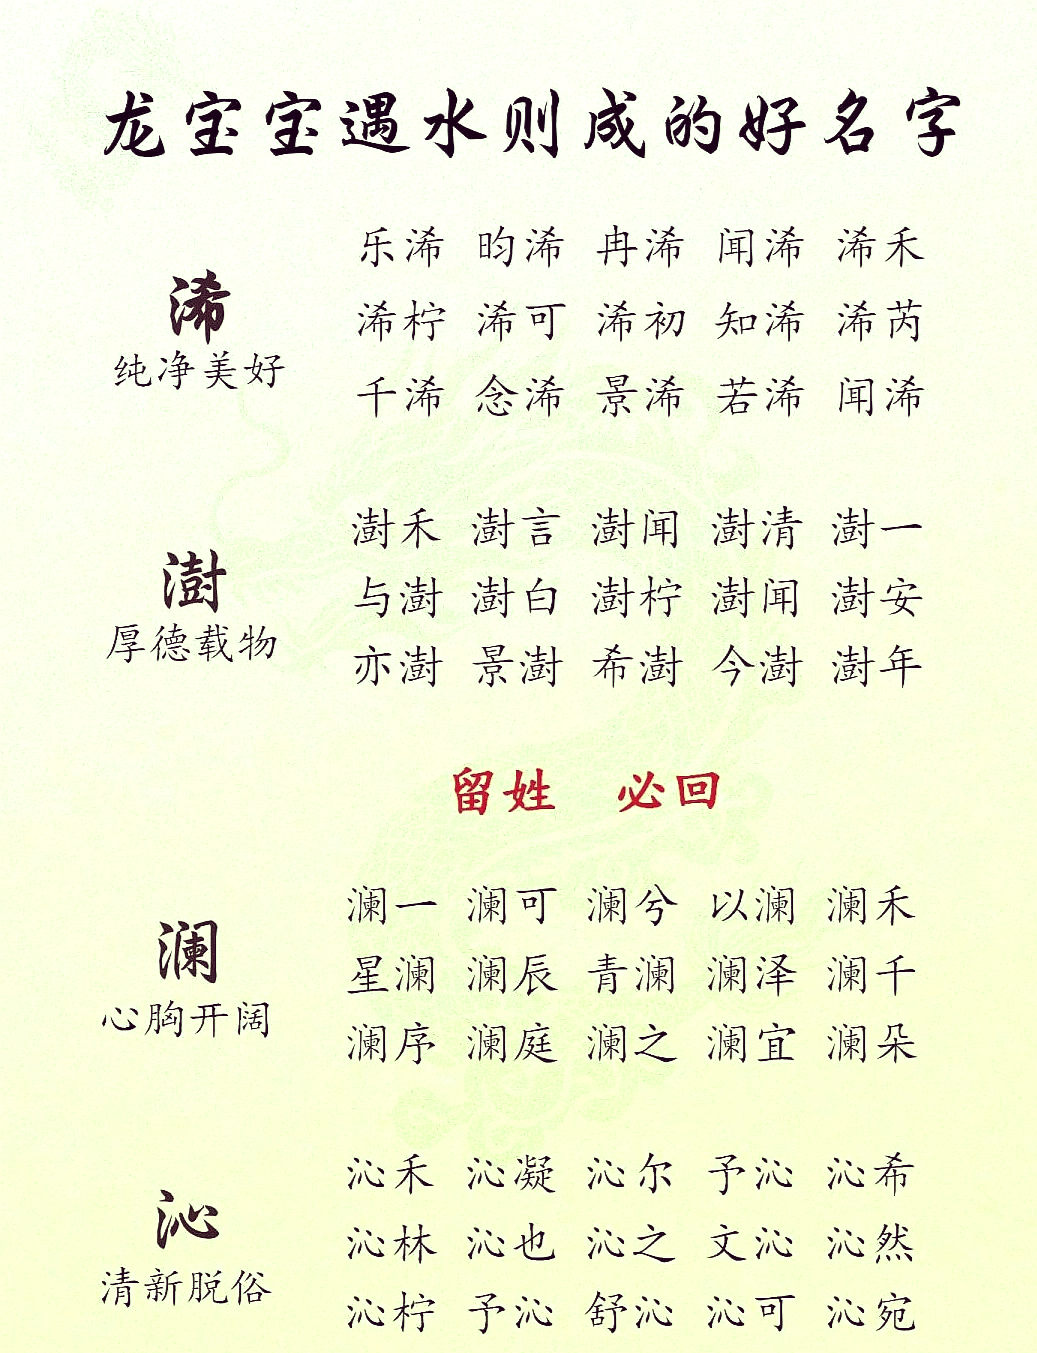 龙宝宝遇水则成的好名字
浠
纯净美好
乐浠 昀浠 冉浠 闻浠 浠禾
浠柠 浠可 浠初 知浠 浠芮
千浠 念浠 景浠 若浠 闻浠
澍
厚德载物
澍禾 澍言 澍闻 澍清 澍一
与澍 澍白 澍柠 澍闻 澍安
亦澍 景澍 希澍 今澍 澍年
留姓 必回
澜
心胸开阔
澜一 澜可 澜兮 以澜 澜禾
星澜 澜辰 青澜 澜泽 澜千
澜序 澜庭 澜之 澜宜 澜朵
沁
清新脱俗
沁禾 沁凝 沁尔 予沁 沁希
沁林 沁也 沁之 文沁 沁然
沁柠 予沁 舒沁 沁可 沁宛